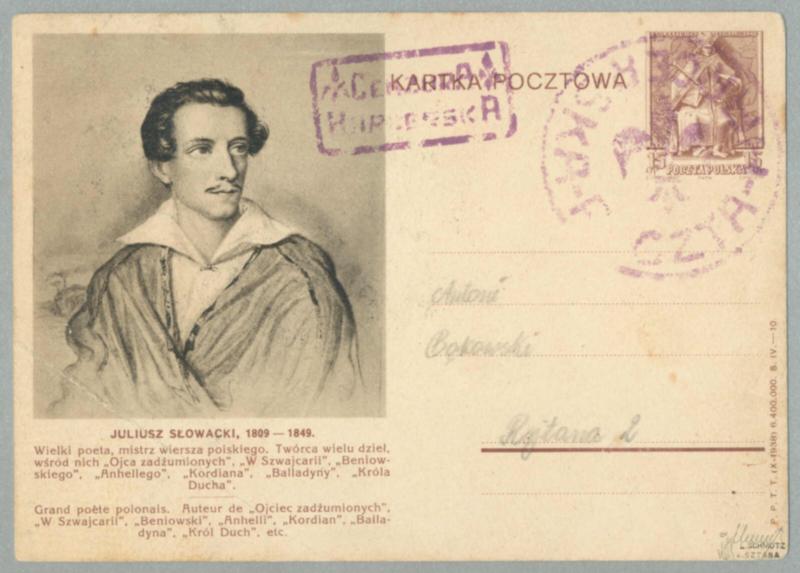 KARTKA POCZTOWA
CENZURA
HARCERSKA
HARCERSKA
POCZTA
15
15
POCZTA POLSKA
Antoni
Bąkowski
Rejtana 2
JULIUSZ SŁOWACKI, 1809 — 1849.
Wielki poeta, mistrz wiersza polskiego. Twórca wielu dzieł,
wśród nich „Ojca zadżumionych”, „W Szwajcarii”, „Beniow-
skiego”, „Anhellego”, „Kordiana”, „Balladyny”, „Króla
Ducha”.
Grand poète polonais. Auteur de „Ojciec zadżumionych”,
„W Szwajcarii”, „Beniowski”, „Anhelli”, „Kordian”, „Balla-
dyna”, „Król Duch”, etc.
P. P. T. T. (X-1938) 6.400.000. B. IV.—10
L. SCHMUTZ
SZTABA